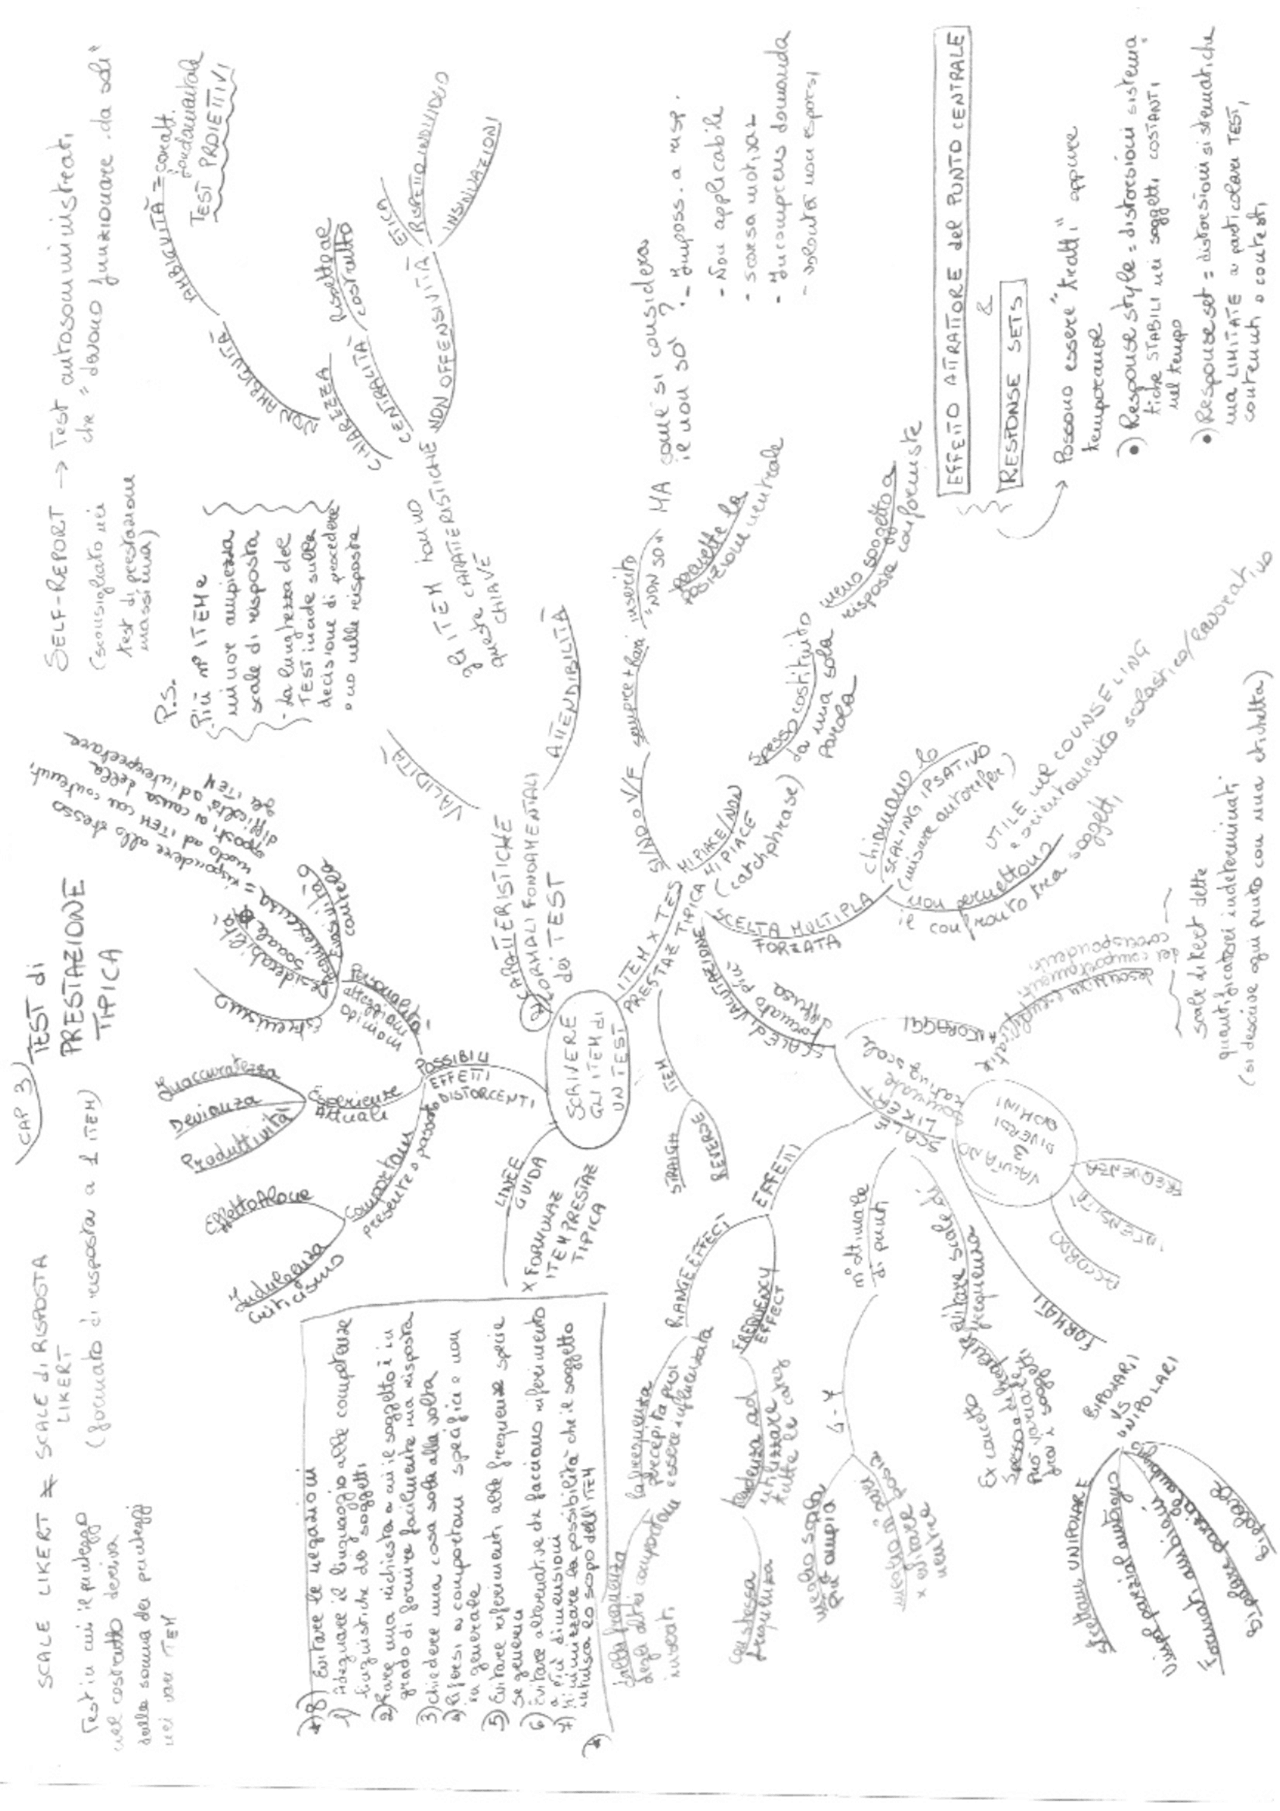 CAP 3)
TEST di
PRESTAZIONE
TIPICA
SCALE LIKERT ≠ SCALE DI RISPOSTA
LIKERT
(formato di risposta a 1 ITEM)
Test in cui il punteggio
nel costrutto deriva
dalla somma dei punteggi
nei vari ITEM
SELF-REPORT → Test autosomministrati,
che "devono funzionare da soli"
(sconsigliato nei
test di prestazione
massima)
P.S.
Più n° ITEM e
minor ampiezza
scale di risposta
- La lunghezza del
TEST incide sulla
decisione di procedere
o no nelle risposte
SCRIVERE
GLI ITEM di
UN TEST
CARATTERISTICHE
FORMALI FONDAMENTALI
dei TEST
VALIDITÀ
ATTENDIBILITÀ
gli ITEM hanno
queste CARATTERISTICHE
CHIAVE
NON AMBIGUITÀ
AMBIGUITÀ = caratt.
fondamentale
TEST PROIETTIVI
CHIAREZZA
CENTRALITÀ rispetto al
costrutto
NON OFFENSIVITÀ
ETICA
RISPETTO INDIVIDUO
INSINUAZIONI
POSSIBILI
EFFETTI
DISTORCENTI
Estremismo
Desiderabilità
sociale
Acquiescenza = rispondere allo stesso
modo ad ITEM con contenuti
opposti a causa della
difficoltà ad interpretare
gli ITEM
Evasività o
cautela
Esperienze
Attuali
Inaccuratezza
Devianza
Produttività
Comportam
presente o passato
Effetto Alone
Indulgenza
Criticismo
LINEE
GUIDA
x FORMULAZ
ITEM PRESTAZ
TIPICA
8) Evitare le negazioni
1) Adeguare il linguaggio alle competenze
linguistiche dei soggetti
2) Fare una richiesta a cui il soggetto è in
grado di fornire facilmente una risposta
3) chiedere una cosa sola alla volta
4) Riferirsi a comportam specifici e non
in generale
5) Evitare riferimenti alle frequenze specie
se generici
6) Evitare alternative che facciano riferimento
a più dimensioni
7) Minimizzare la possibilità che il soggetto
intuisca lo scopo dell'ITEM
ITEM x TEST
PRESTAZ TIPICA
ITEM
STRAIGH
REVERSE
SI/NO o V/F
sempre + rari inserito
"NON SO"
permette la
posizione neutrale
MA come si considera
il non so?
- Imposs. a risp.
- Non applicabile
- scarsa motivaz
- Incomprens domanda
- volontà non esporsi
MI PIACE/NON
MI PIACE
(catchphrase)
Spesso costituito
da una sola
parola
meno soggetto a
risposte conformiste
SCELTA MULTIPLA
FORZATA
chiamano lo
SCALING IPSATIVO
(misure autorifer)
UTILE nel COUNSELING
e orientamento scolastico/lavorativo
non permettono
il confronto tra soggetti
EFFETTO ATTRATTORE del PUNTO CENTRALE
&
RESPONSE SETS
Possono essere "tratti" oppure
temporanee
•) Response style = distorsioni sistema
tiche STABILI nei soggetti COSTANTI
nel tempo
•) Response set = distorsioni sistematiche
ma LIMITATE a particolari TEST,
contenuti o contesti
SCALE di VALUTAZIONE
Formato più
diffuso
SCALE LIKERT
rating scale
ANCORAGGI
descrizioni esemplificative
dei comportamenti
corrispondenti
VALUTANO
3
DIVERSI
DOMINI
FREQUENZA
INTENSITÀ
ACCORDO
scale likert dette
quantificatori indeterminati
(si descrive ogni punto con una etichetta)
EFFETTI
RANGE EFFECT
la frequenza
percepita può
essere influenzata
dalla frequenza
degli altri comportam
indicati
FREQUENCY
EFFECT
tendenza ad
utilizzare
tutte le categ
con stessa
frequenza
n° ottimale
di punti
4-7
meglio scala
più ampia
meglio n° pari
x evitare posiz
neutra
evitare scale di
frequenza
Ex concetto
Spesso o di frequente
può variare
tra i soggetti
FORMATI
BIPOLARI
VS
UNIPOLARI
Scelta UNIPOLARE
Formati ambigui
bipolare